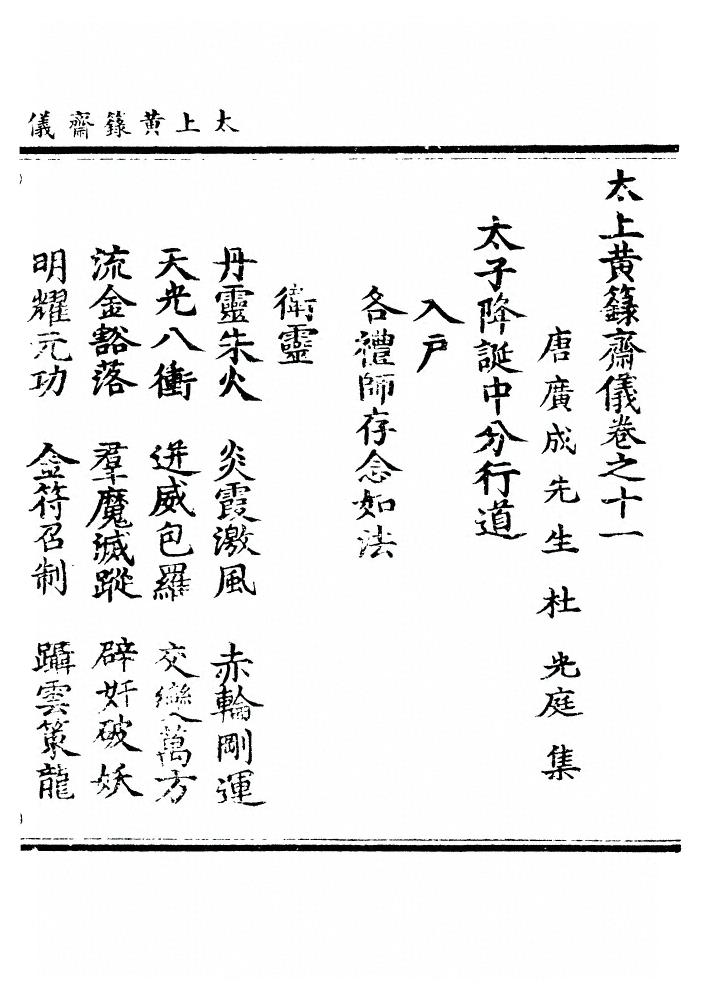 太上黃籙齋儀
太上黃籙齋儀卷之十一
唐廣成先生杜光庭集
太子降誕中分行道
入戶
各禮師存念如法
衛靈
丹靈朱火 炎霞激風 赤輪剛運
天光八衝 迸威包羅 交變萬方
流金豁落 羣魔滅蹤 辟奸破妖
明耀元功 金符召制 躡雲策龍